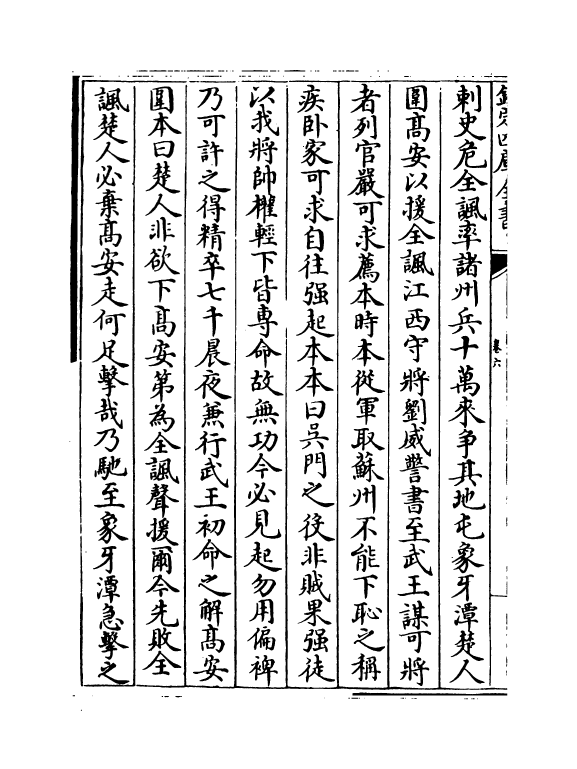 欽定四庫全書
卷六
刺史危全諷率諸州兵十萬來争其地屯象牙潭楚人
圍髙安以援全諷江西守將劉威警書至武王謀可將
者列官嚴可求薦本時本從軍取蘇州不能下恥之稱
疾卧家可求自往强起本本曰吳門之役非賊果强徒
以我將帥權輕下皆専命故無功今必見起勿用偏裨
乃可許之得精卒七千晨夜兼行武王初命之解髙安
圍本曰楚人非欲下髙安第為全諷聲援爾今先敗全
諷楚人必棄髙安走何足擊哉乃馳至象牙潭急擊之